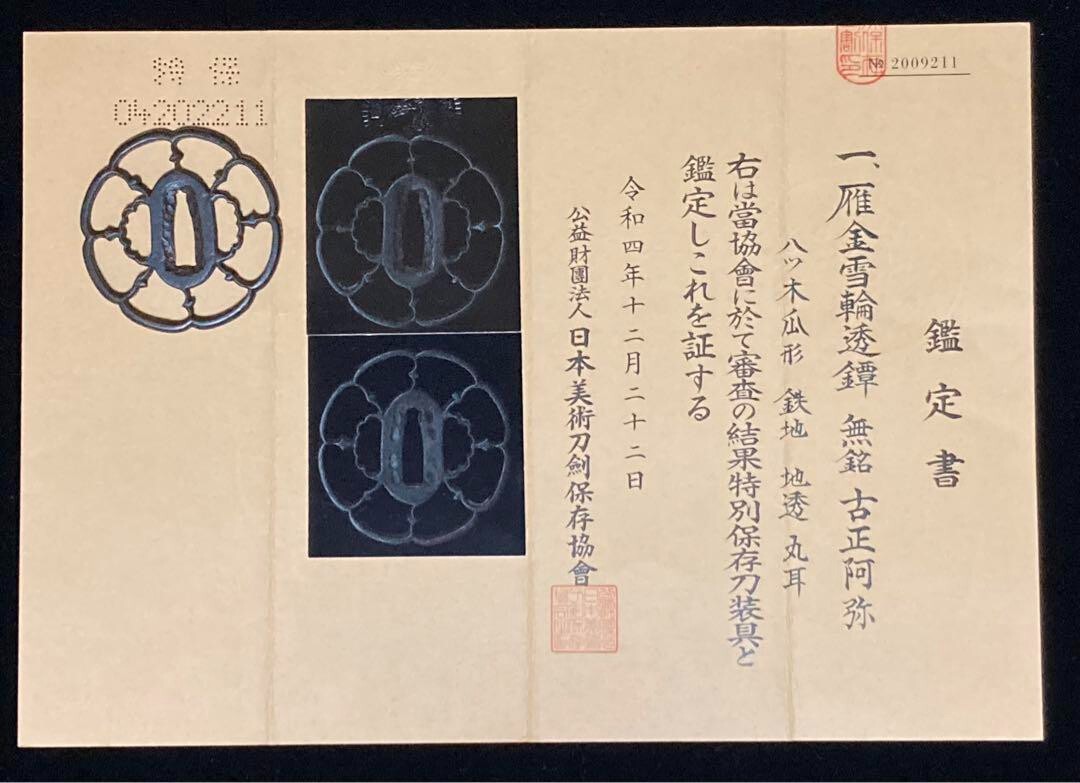 № 2009211
鑑定書
一、雁金雪輪透鐔 無銘 古正阿弥
八ッ木瓜形 鉄地 地透 丸耳
右は當協會に於て審査の結果特別保存刀装具と
鑑定しこれを証する
令和四年十二月二十二日
公益財團法人 日本美術刀劍保存協會
特保
04202211